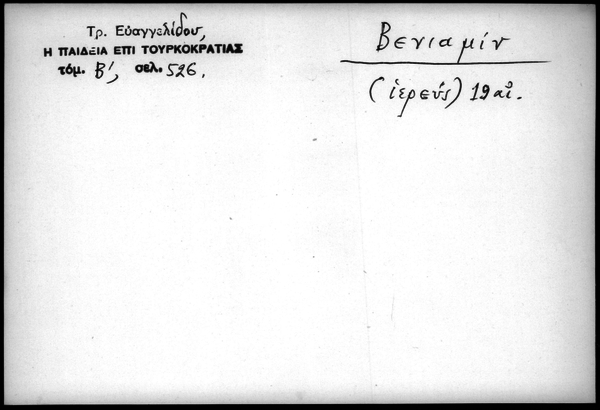 Τρ. Εὐαγγελίδου,
Η ΠΑΙΔΕΙΑ ΕΠΙ ΤΟΥΡΚΟΚΡΑΤΙΑΣ
τόμ. Β', σελ. 526.
Βενιαμίν
(ἱερεύς) 19 αἰ.